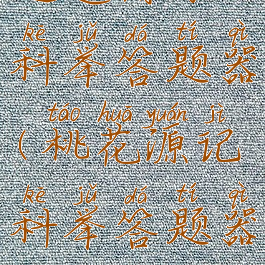 kē jǔ dá tí qì
科举答题器
táo huā yuán jì
(桃花源记
kē jǔ dá tí qì
科举答题器